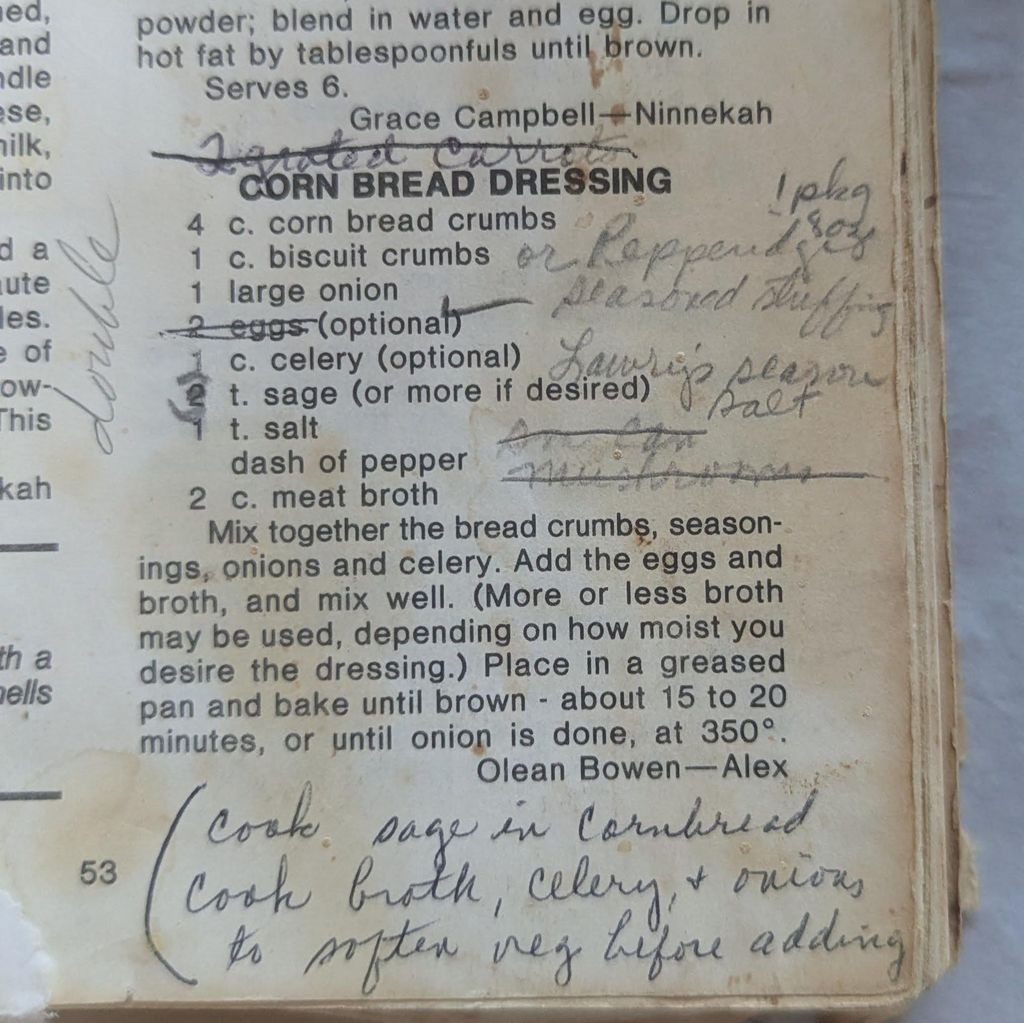 ned,
and
ndle
ese,
nilk,
into
d a
ute
les.
e of
ow-
This
kah
th a
nells
53
double
powder; blend in water and egg. Drop in
hot fat by tablespoonfuls until brown.
Serves 6.
Grace Campbell—Ninnekah
2 grated carrots
CORN BREAD DRESSING
4 c. corn bread crumbs
1 c. biscuit crumbs or Pepperidges
1 pkg
8 oz
1 large onion seasoned stuffing
2 eggs (optional)
1 c. celery (optional) Lawry's season
2 t. sage (or more if desired) salt
1 t. salt
can
dash of pepper mushrooms
2 c. meat broth
Mix together the bread crumbs, season-
ings, onions and celery. Add the eggs and
broth, and mix well. (More or less broth
may be used, depending on how moist you
desire the dressing.) Place in a greased
pan and bake until brown - about 15 to 20
minutes, or until onion is done, at 350°.
Olean Bowen—Alex
(cook sage in cornbread
cook broth, celery, + onions
to soften veg before adding